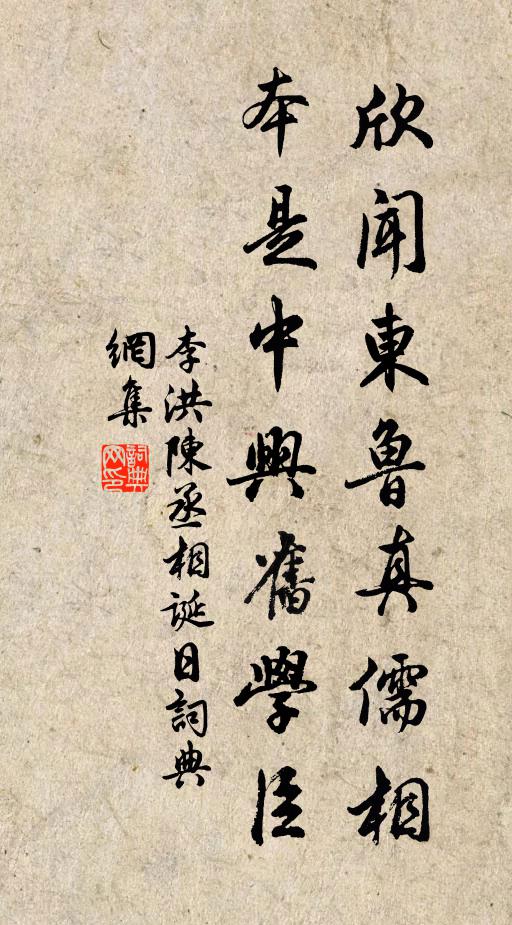 欣聞東魯真儒相
本是中興舊學臣
李洪陳丞相誕日詞典
網集
詞典
网印